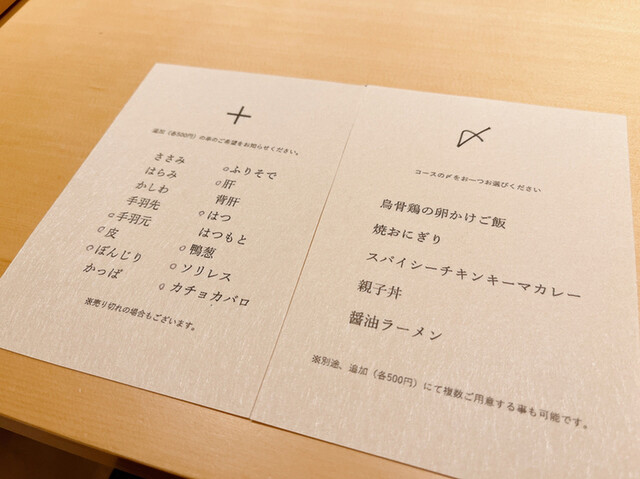 +
追加（各500円）の串のご希望をお知らせください。
ささみ
はらみ
かしわ
手羽先
○手羽元
○皮
○ぼんじり
かっぱ
○ふりそで
○肝
背肝
○はつ
はつもと
○鴨葱
○ソリレス
○カチョカバロ
※売り切れの場合もございます。
〆
コースの〆をお一つお選びください
烏骨鶏の卵かけご飯
焼おにぎり
スパイシーチキンキーマカレー
親子丼
醤油ラーメン
※別途、追加（各500円）にて複数ご用意する事も可能です。